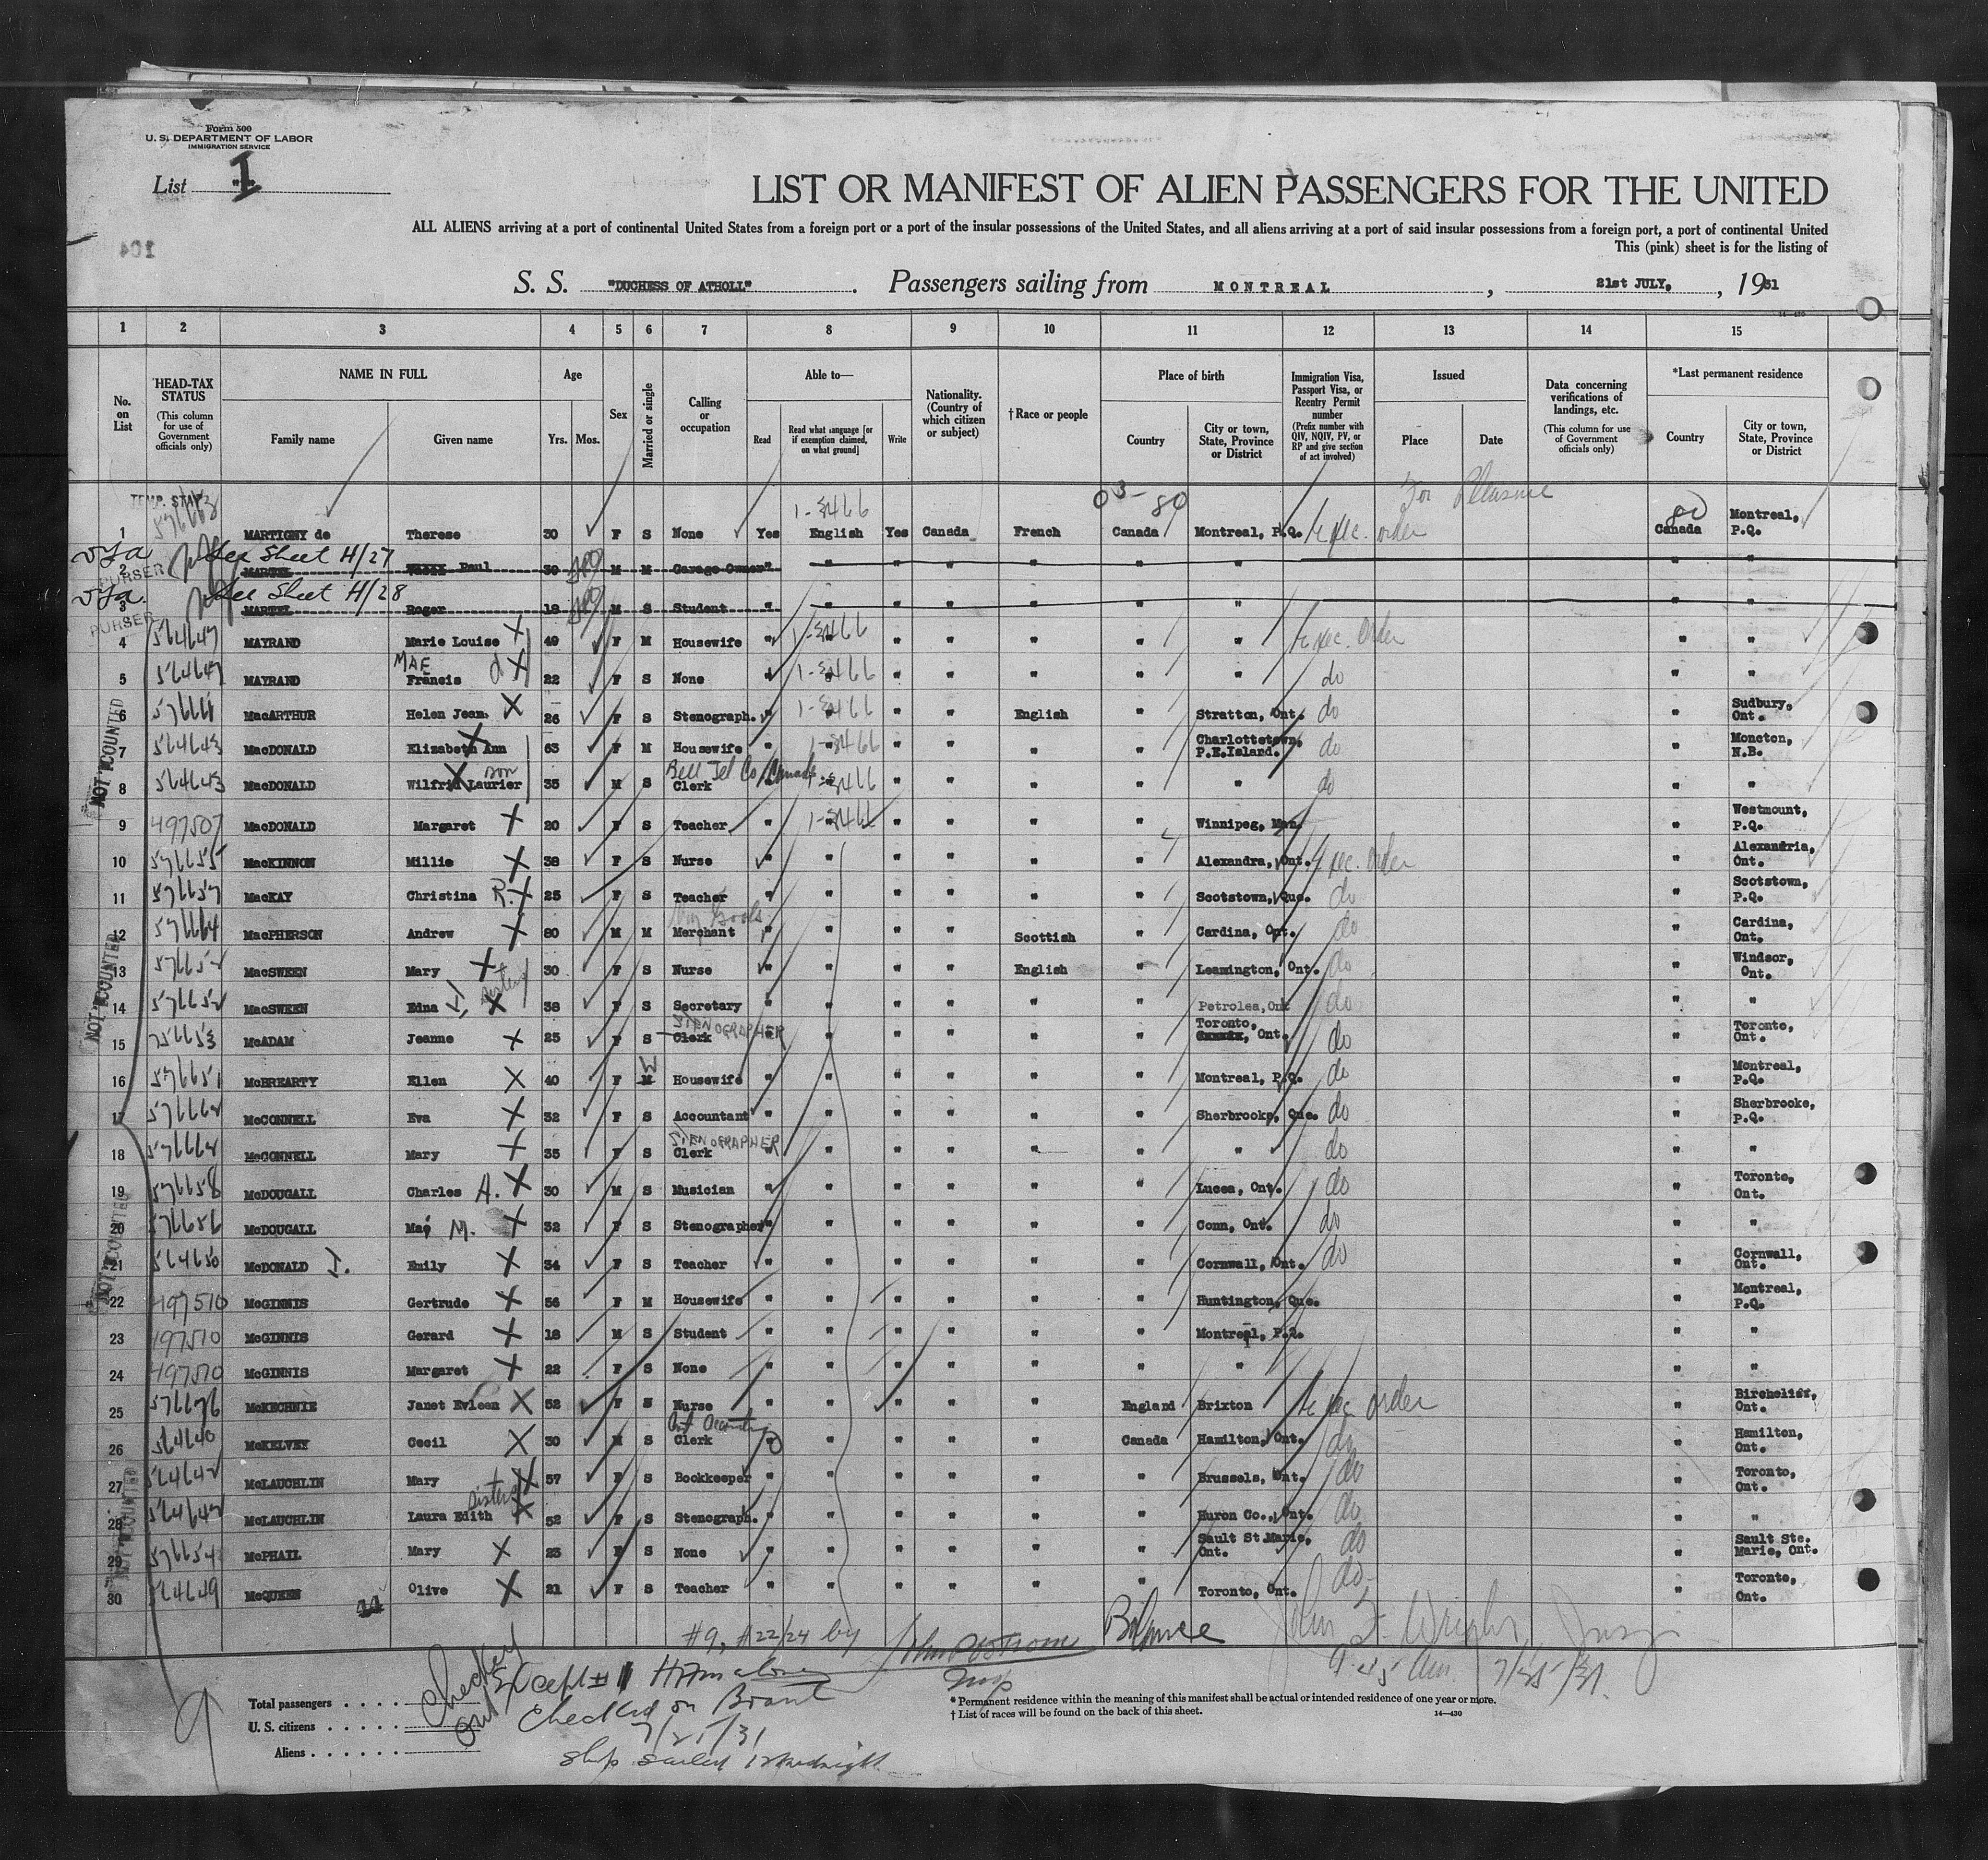 Form 500
U. S. DEPARTMENT OF LABOR
IMMIGRATION SERVICE
List I
LIST OR MANIFEST OF ALIEN PASSENGERS FOR THE UNITED
ALL ALIENS arriving at a port of continental United States from a foreign port or a port of the insular possessions of the United States, and all aliens arriving at a port of said insular possessions from a foreign port, a port of continental United
This (pink) sheet is for the listing of
S. S. "DUCHESS OF ATHOLL" . Passengers sailing from MONTREAL , 21st JULY, , 1931
14-430
1 2 3 4 5 6 7 8 9 10 11 12 13 14 15
No. on List
HEAD-TAX STATUS
(This column for use of Government officials only)
NAME IN FULL
Family name Given name
Age
Yrs. Mos.
Sex
Married or single
Calling or occupation
Able to—
Read
Read what language [or if exemption claimed, on what ground]
Write
Nationality. (Country of which citizen or subject)
† Race or people
Place of birth
Country
City or town, State, Province or District
Immigration Visa, Passport Visa, or Reentry Permit number
(Prefix number with QIV, NQIV, PV, or RP and give section of act involved)
Issued
Place Date
Data concerning verifications of landings, etc.
(This column for use of Government officials only)
*Last permanent residence
Country
City or town, State, Province or District
TEMP. STAY
For Pleasure
1-3466 03- 80 80
1 MARTIGNY de Therese 30 F S None Yes English Yes Canada French Canada Montreal, P.Q. Exec. order Canada Montreal, P.Q.
See Sheet H/27
2 PURSER MARTEL Paul 30 M M Garage Owner " " " " " " " " "
See Sheet H/28
3 PURSER MARTEL Roger 18 M S Student " " " " " " " " "
4 564647 MAYRAND Marie Louise X 49 F M Housewife " 1-3466 " " " " " Exec. Order " "
5 564647 MAYRAND Francis MAE d X 22 F S None " 1-3466 " " " " " do " "
6 MacARTHUR Helen Jean X 26 F S Stenograph. " 1-3466 " " English " Stratton, Ont. do " Sudbury, Ont.
7 564643 MacDONALD Elizabeth Ann X 63 F M Housewife " 1-3466 " " " " Charlottetown, P.E.Island. do " Moncton, N.B.
8 564643 MacDONALD Wilfrid Laurier X son 35 M S Bell Tel Co / Canada Clerk " 1-3466 " " " " " do " "
9 497507 MacDONALD Margaret X 20 F S Teacher " 1-3466 " " " " Winnipeg, Man. " Westmount, P.Q.
10 576655 MacKINNON Millie X 38 F S Nurse " " " " " " Alexandra, Ont. Exec. order " Alexandria, Ont.
11 576657 MacKAY Christina R. X 25 F S Teacher " " " " " " Scotstown, Que. do " Scotstown, P.Q.
12 576664 MacPHERSON Andrew X 80 M M Merchant " " " " Scottish " Cardina, Ont. do " Cardina, Ont.
13 576652 MacSWEEN Mary X 30 F S Nurse " " " " English " Leamington, Ont. do " Windsor, Ont.
14 576652 MacSWEEN Edna X 38 F S Secretary " " " " " " Petrolea, Ont do " "
15 McADAM Jeanne X 25 F S Clerk STENOGRAPHER " " " " " " Toronto, Ont. do " Toronto, Ont.
16 576651 McBREARTY Ellen X 40 F M W Housewife " " " " " " Montreal, P.Q. do " Montreal, P.Q.
17 576662 McCONNELL Eva X 32 F S Accountant " " " " " " Sherbrooke, Que. do " Sherbrooke, P.Q.
18 576662 McCONNELL Mary X 35 F S STENOGRAPHER Clerk " " " " " " " do " "
19 576658 McDOUGALL Charles A. X 30 M S Musician " " " " " " Lucea, Ont. do " Toronto, Ont.
20 576656 McDOUGALL Mae M. X 32 F S Stenographer " " " " " " Conn, Ont. do " "
21 564650 McDONALD J. Emily X 34 F S Teacher " " " " " " Cornwall, Ont. do " Cornwall, Ont.
22 497510 McGINNIS Gertrude X 56 F M Housewife " " " " " " Huntington, Que. " Montreal, P.Q.
23 497510 McGINNIS Gerard X 18 M S Student " " " " " " Montreal, P.Q. " "
24 497510 McGINNIS Margaret X 22 F S None " " " " " " " " "
25 576676 McKECHNIE Janet Evleen X 52 F S Nurse " " " " " England Brixton Exec order " Birchcliff, Ont.
26 564640 McKELVEY Cecil X 30 M S Clerk " " " " " Canada Hamilton, Ont. do " Hamilton, Ont.
27 564642 McLAUGHLIN Mary X 57 F S Bookkeeper " " " " " " Brussels, Ont. do " Toronto, Ont.
28 564642 McLAUGHLIN Laura Edith sisters X 52 F S Stenograph. " " " " " " Huron Co., Ont. do " "
29 576654 McPHAIL Mary X 23 F S None " " " " " " Sault St Marie, Ont. do " Sault Ste. Marie, Ont.
30 564649 McQUEEN Olive X 21 F S Teacher " " " " " " Toronto, Ont. do " Toronto, Ont.
NOT COUNTED
NOT COUNTED
NOT COUNTED
NOT COUNTED
#9, #22/24 by Balance John F. Wright, Insp
Insp 9.45 Am 7/25/31.
checked out Except #1
checked on Board
7/21/31
ship sailed 12 midnight
Total passengers . . . .
U. S. citizens . . . . .
Aliens . . . . . .
* Permanent residence within the meaning of this manifest shall be actual or intended residence of one year or more.
† List of races will be found on the back of this sheet.
14—430